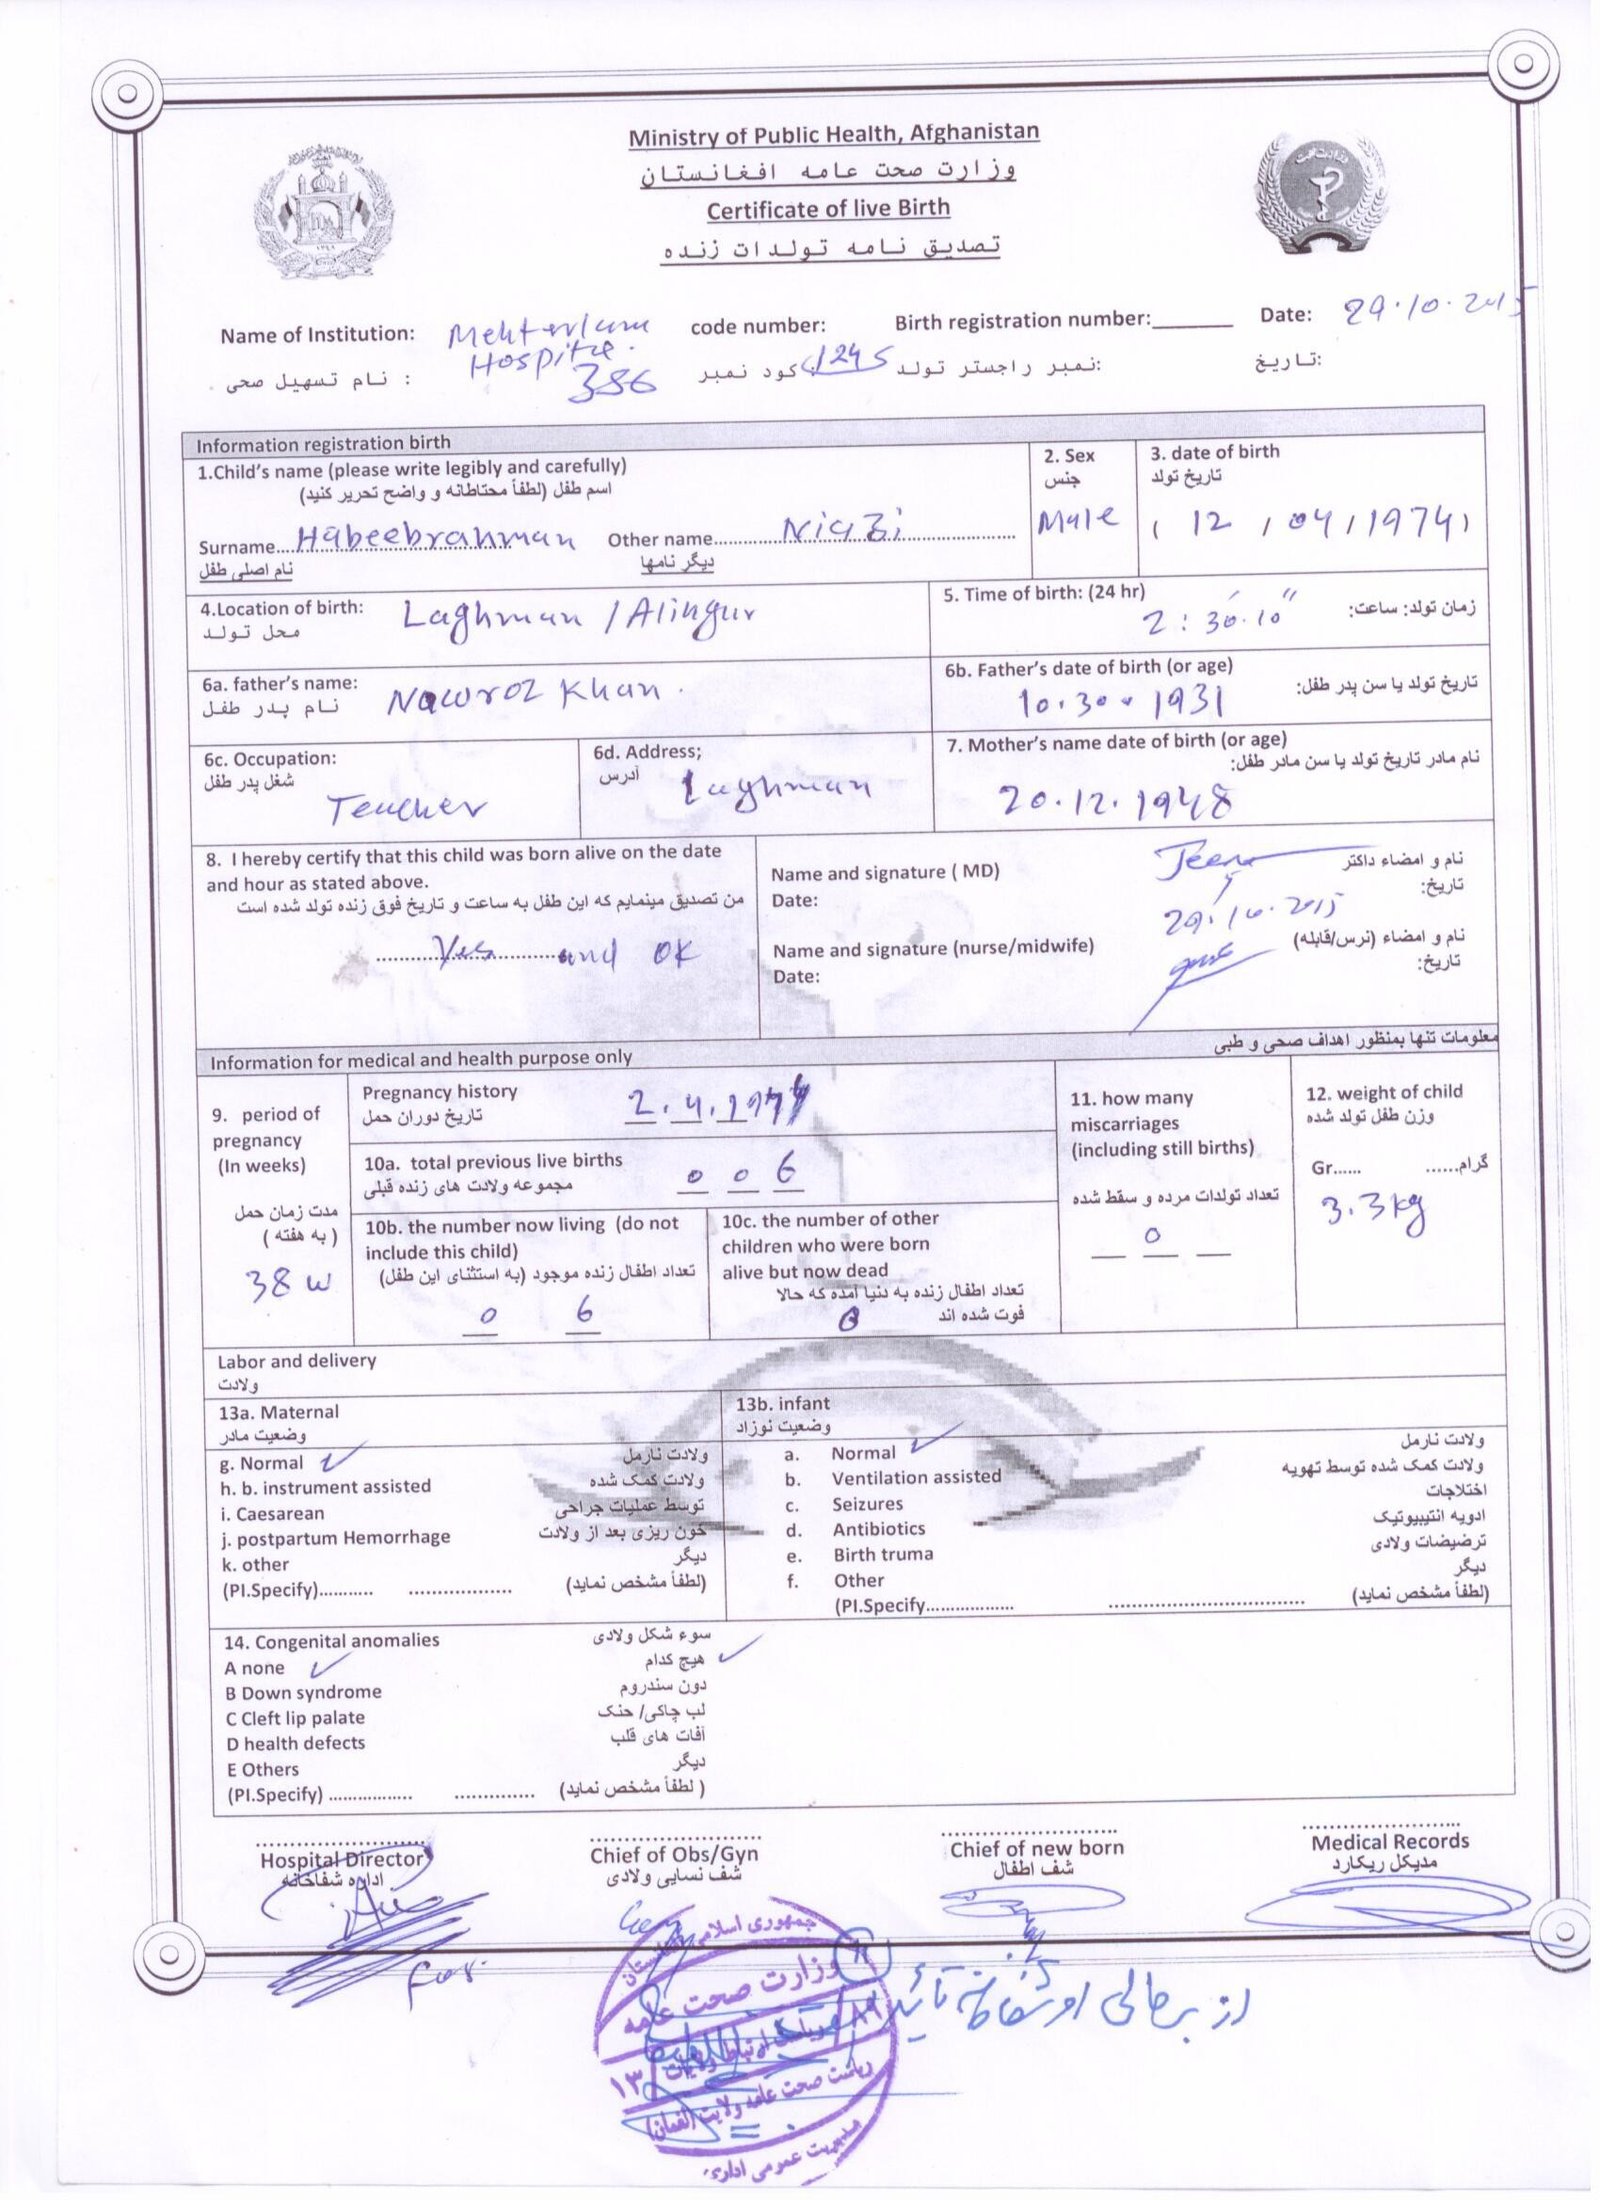 Ministry of Public Health, Afghanistan
وزارت صحت عامه افغانستان
Certificate of live Birth
تصدیق نامه تولدات زنده
Name of Institution: Mehterlam Hospital code number: Birth registration number:_______ Date: 29.10.2015
نام تسهیل صحی : 386 کود نمبر 1245 نمبر راجستر تولد: تاریخ:
Information registration birth
1.Child's name (please write legibly and carefully)
اسم طفل (لطفاً محتاطانه و واضح تحریر کنید)
Surname....Habeebrahman Other name............Niazi............
نام اصلی طفل دیگر نامها
2. Sex
جنس
Male
3. date of birth
تاریخ تولد
( 12 / 04 / 1974 )
4.Location of birth: Laghman / Alingar
محل تولد
5. Time of birth: (24 hr)
زمان تولد: ساعت:
2 : 30' . 10"
6a. father's name: Nawroz Khan.
نام پدر طفل
6b. Father's date of birth (or age)
تاریخ تولد یا سن پدر طفل:
10.30.1931
6c. Occupation:
شغل پدر طفل
Teacher
6d. Address;
آدرس
Laghman
7. Mother's name date of birth (or age)
نام مادر تاریخ تولد یا سن مادر طفل:
20.12.1948
8. I hereby certify that this child was born alive on the date
and hour as stated above.
من تصدیق مینمایم که این طفل به ساعت و تاریخ فوق زنده تولد شده است
Yes and ok
Name and signature ( MD) نام و امضاء داکتر
Date: تاریخ:
29.10.2015
Name and signature (nurse/midwife) نام و امضاء (نرس/قابله)
Date: تاریخ:
Information for medical and health purpose only معلومات تنها بمنظور اهداف صحی و طبی
9. period of
pregnancy
(In weeks)
مدت زمان حمل
( به هفته )
38 w
Pregnancy history
تاریخ دوران حمل
2.4.1974
10a. total previous live births
مجموعه ولادت های زنده قبلی
0 0 6
10b. the number now living (do not
include this child)
تعداد اطفال زنده موجود (به استثنای این طفل)
0 6
10c. the number of other
children who were born
alive but now dead
تعداد اطفال زنده به دنیا آمده که حالا
فوت شده اند
0
11. how many
miscarriages
(including still births)
تعداد تولدات مرده و سقط شده
0
12. weight of child
وزن طفل تولد شده
Gr...... گرام......
3.3 kg
Labor and delivery
ولادت
13a. Maternal
وضعیت مادر
g. Normal ✓ ولادت نارمل
h. b. instrument assisted ولادت کمک شده
i. Caesarean توسط عملیات جراحی
j. postpartum Hemorrhage خون ریزی بعد از ولادت
k. other دیگر
(Pl.Specify)........... .................. (لطفاً مشخص نماید)
13b. infant
وضعیت نوزاد
a. Normal ✓ ولادت نارمل
b. Ventilation assisted ولادت کمک شده توسط تهویه
c. Seizures اختلاجات
d. Antibiotics ادویه انتیبیوتیک
e. Birth truma ترضیضات ولادی
f. Other دیگر
(Pl.Specify.................. .................................. (لطفاً مشخص نماید)
14. Congenital anomalies سوء شکل ولادی
A none ✓ هیچ کدام ✓
B Down syndrome دون سندروم
C Cleft lip palate لب چاکی/ حنک
D health defects آفات های قلب
E Others دیگر
(Pl.Specify) ................. .............. (لطفاً مشخص نماید )
Hospital Director
اداره شفاخانه
Chief of Obs/Gyn
شف نسایی ولادی
Chief of new born
شف اطفال
Medical Records
مدیکل ریکارد
For
جمهوری اسلامی
وزارت صحت عامه
ریاست صحت عامه ولایت (لغمان)
مدیریت عمومی اداری